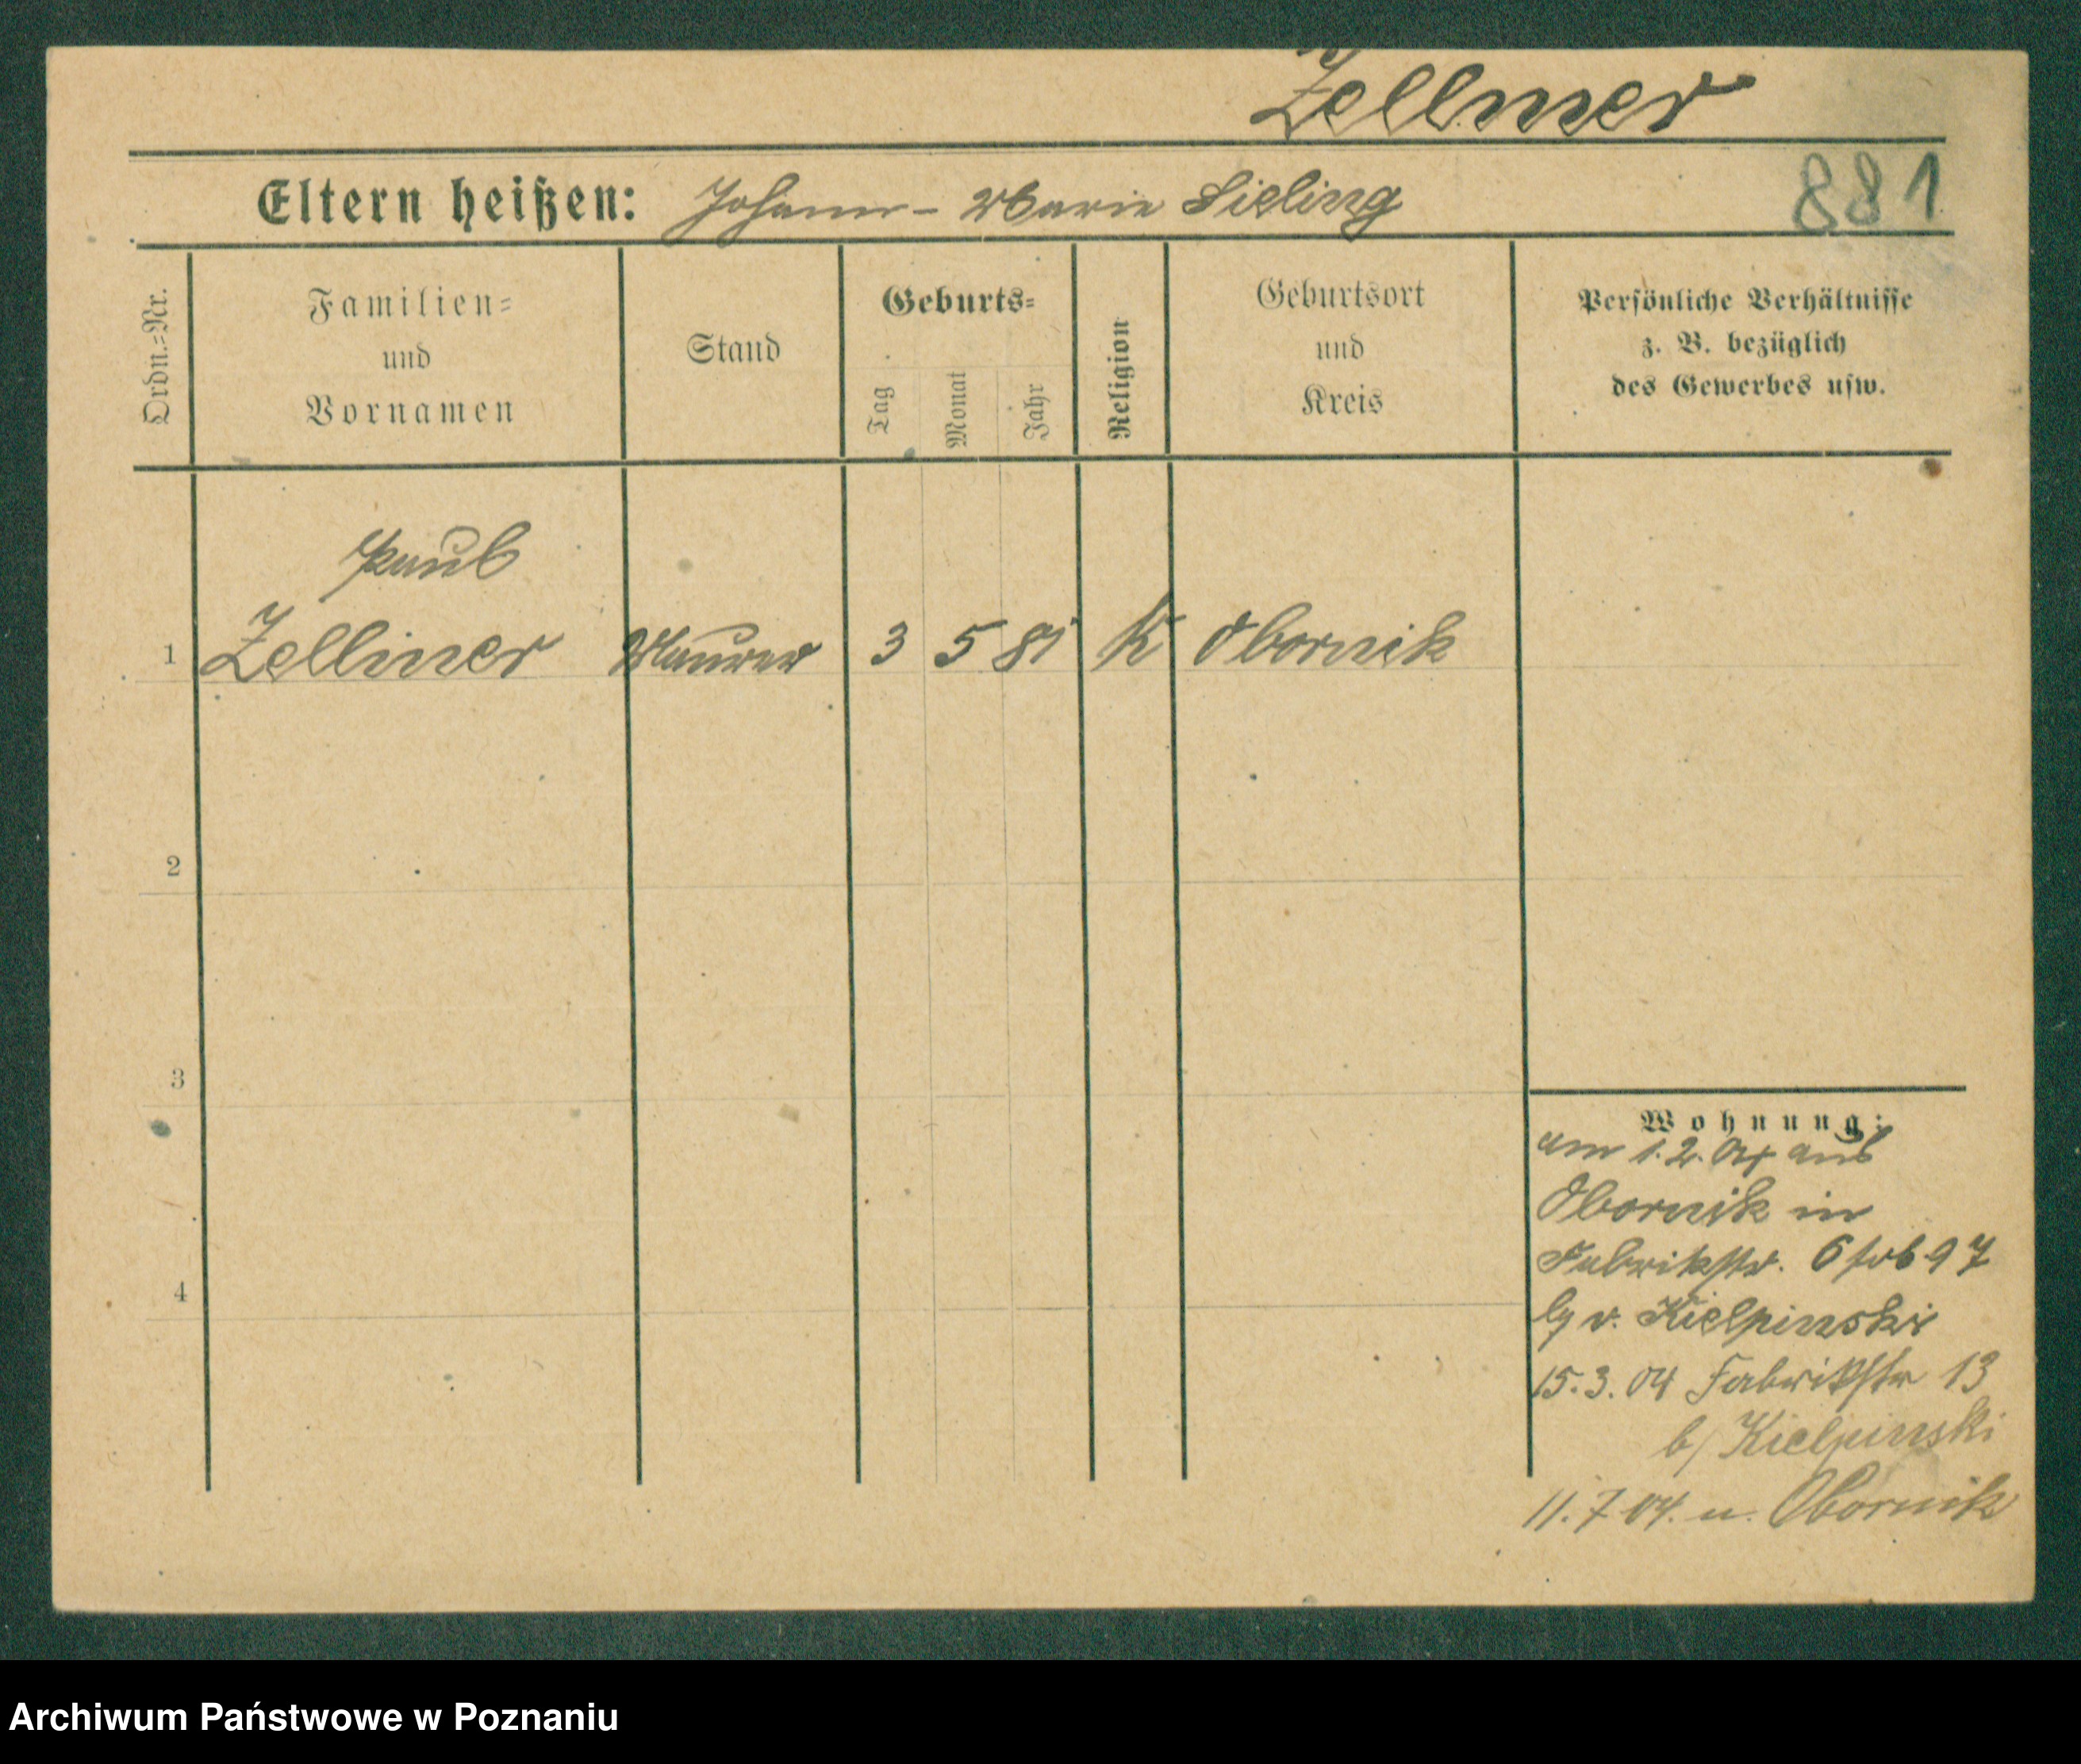 Zellmer
Eltern heißen: Johann - Marie Sieling
881
Ordn.-Nr.
Familien-
und
Vornamen
Stand
Geburts-
Tag
Monat
Jahr
Religion
Geburtsort
und
Kreis
Persönliche Verhältnisse
z. B. bezüglich
des Gewerbes usw.
Paul
1 Zellmer Maurer 3 5 81 K Obornik
2
3
4
Wohnung:
am 1.2.04 aus
Obornik in
Fabrikstr. 6
v. Kielpinski
15.3.04 Fabrikstr 13
b/ Kielpinski
11.7.04. n. Obornik
Archiwum Państwowe w Poznaniu